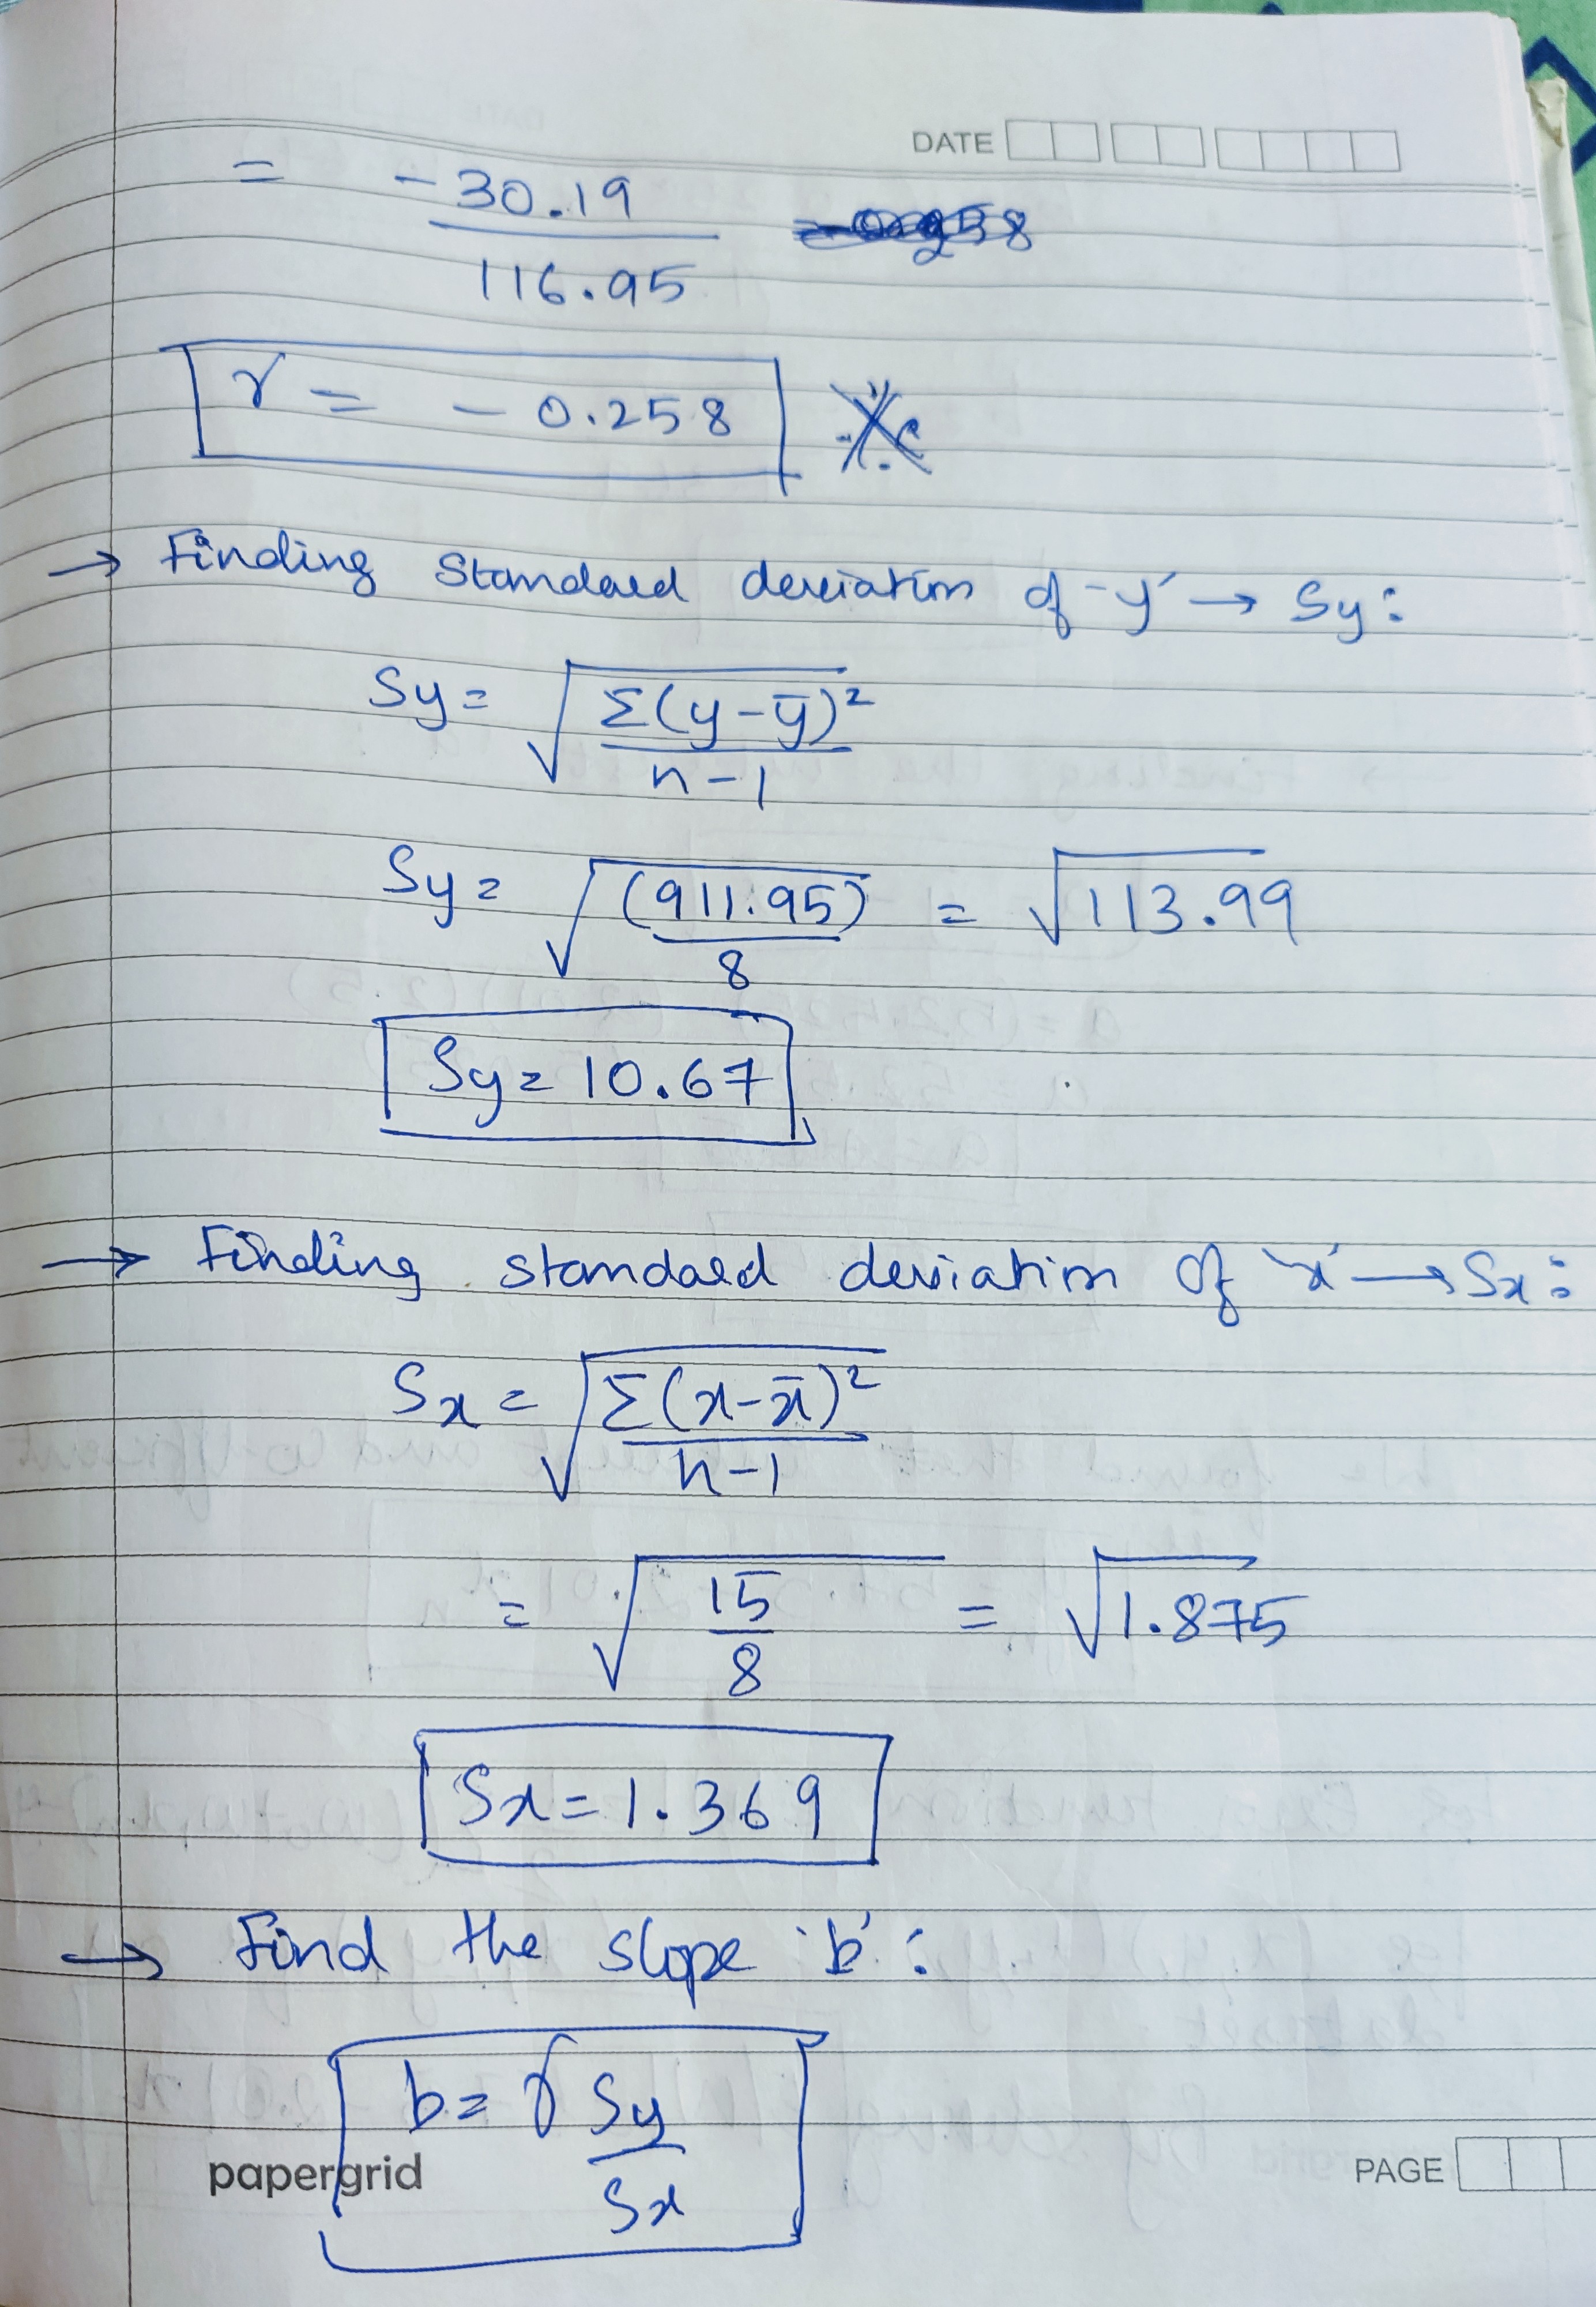 DATE
= -30.19 / 116.95
r = -0.258
→ Finding Standard deviation of 'y' → Sy:
Sy = √(Σ(y-ȳ)² / n-1)
Sy = √((911.95) / 8) = √113.99
Sy = 10.67
→ Finding standard deviation of 'x' → Sx:
Sx = √(Σ(x-x̄)² / n-1)
= √(15 / 8) = √1.875
Sx = 1.369
→ Find the slope 'b':
b = r Sy / Sx
papergrid
PAGE